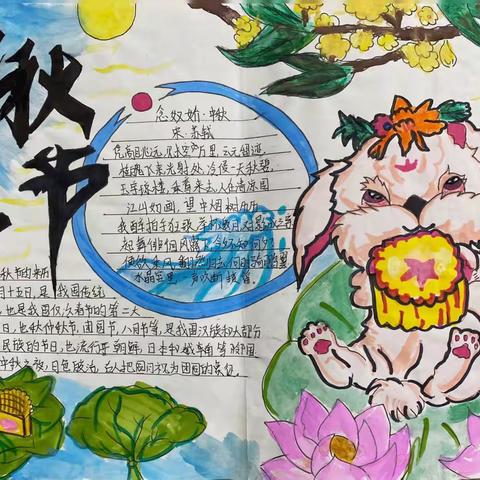 秋
节
念奴娇·中秋
宋·苏轼
凭高眺远,见长空万里,云无留迹。
桂魄飞来,光射处,冷浸一天秋碧。
玉宇琼楼,乘鸾来去,人在清凉国
江山如画,望中烟树历历
我醉拍手狂歌,举杯邀月,对影成三客
起舞徘徊风露下,今夕不知何夕?
便欲乘风,翻然归去,何用骑鹏翼
水晶宫里,一声吹断横笛。
秋节的来历
月十五日,是我国传统
,也是我国仅次春节的第二大
日,也称仲秋节、团圆节、八月节等,是我国汉族和大部分
民族的节日,也流行于朝鲜、日本和越南等邻国
中秋之夜,月色皎洁,古人把圆月视为团圆的象征,